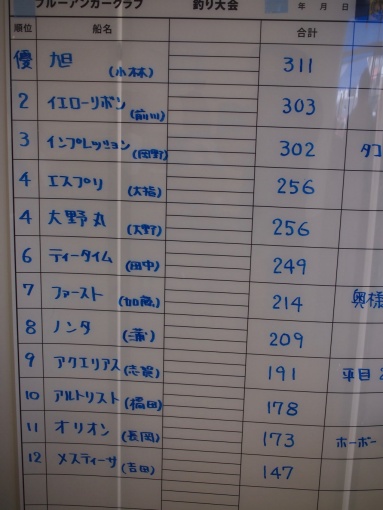 ブルーアンカークラブ 釣り大会 年 月 日
順位 船名 合計
優 旭 (小林) 311
2 イエローリボン (前川) 303
3 インプレッション (岡野) 302 タコ
4 エスプリ (大指) 256
4 大野丸 (大野) 256
6 ティータイム (田中) 249
7 ファースト (加藤) 214 奥様
8 ノンタ (蒲) 209
9 アクエリアス (志賀) 191 平目 2
10 アルトリスト (橋田) 178
11 オリオン (長岡) 173 ホーボー
12 メスティーサ (吉田) 147